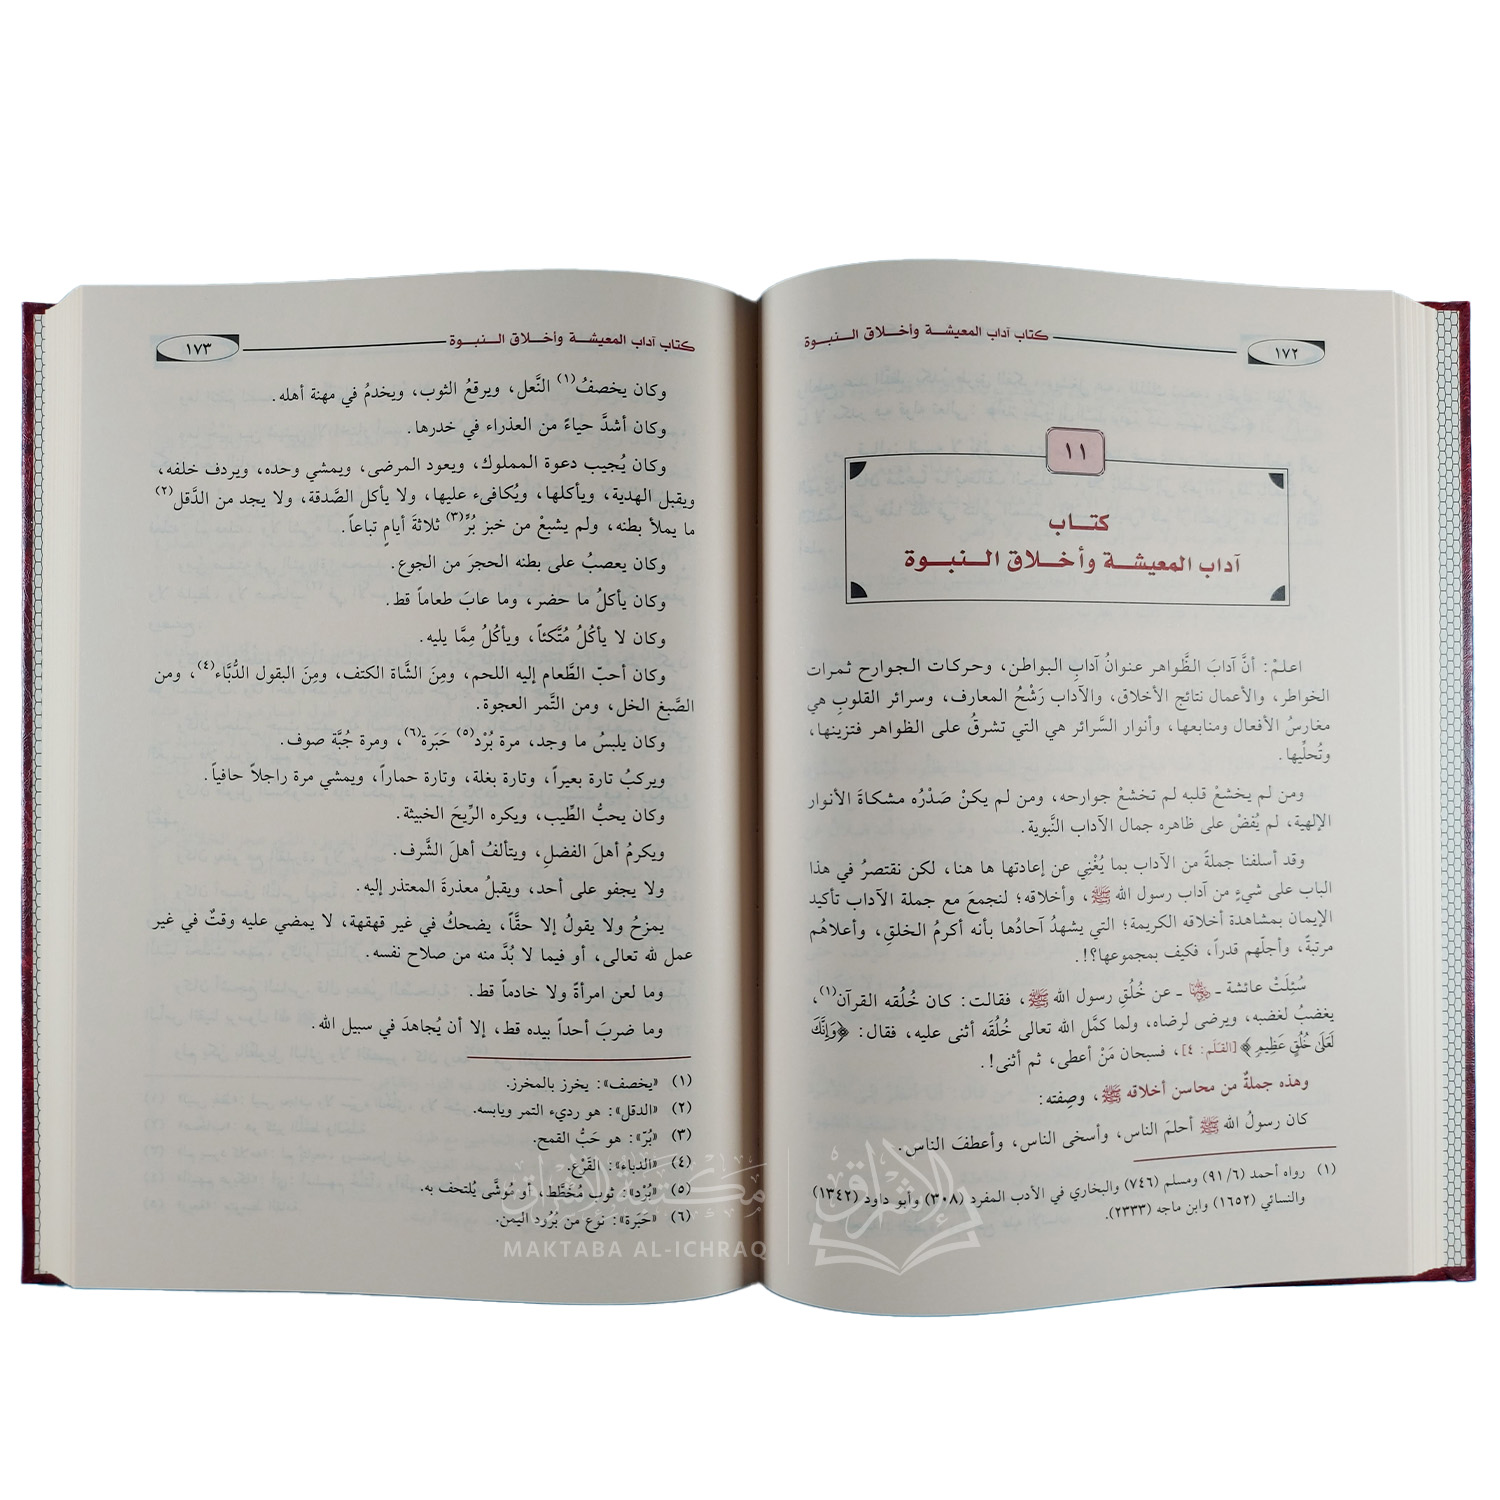 كتاب آداب المعيشة وأخلاق النبوة
١٧٢
١١
كتاب
آداب المعيشة وأخلاق النبوة
اعلمْ: أنَّ آدابَ الظَّواهر عنوانُ آدابِ البواطن، وحركات الجوارح ثمرات
الخواطر، والأعمال نتائج الأخلاق، والآداب رَشْحُ المعارف، وسرائر القلوبِ هي
مغارسُ الأفعال ومنابعها، وأنوار السَّرائر هي التي تشرقُ على الظواهر فتزينها،
وتُحلِّيها.
ومن لم يخشعْ قلبه لم تخشعْ جوارحه، ومن لم يكنْ صَدْرُه مشكاةَ الأنوار
الإلهية، لم يُفضْ على ظاهره جمال الآداب النَّبوية.
وقد أسلفنا جملةً من الآداب بما يُغْنِي عن إعادتها ها هنا، لكن نقتصرُ في هذا
الباب على شيءٍ من آداب رسول الله ﷺ، وأخلاقه؛ لنجمعَ مع جملة الآداب تأكيد
الإيمان بمشاهدة أخلاقه الكريمة؛ التي يشهدُ آحادُها بأنه أكرمُ الخلقِ، وأعلاهُم
مرتبةً، وأجلّهم قدراً، فكيف بمجموعها؟!.
سُئِلَتْ عائشة ـ رضي الله عنها ـ عن خُلُقِ رسول الله ﷺ، فقالت: كان خُلُقه القرآن(١)،
يغضبُ لغضبه، ويرضى لرضاه، ولما كمَّل الله تعالى خُلُقَه أثنى عليه، فقال: ﴿وَإِنَّكَ
لَعَلَىٰ خُلُقٍ عَظِيمٍ﴾ [القلم: ٤]، فسبحان مَنْ أعطى، ثم أثنى!.
وهذه جملةٌ من محاسن أخلاقه ﷺ، وصِفته:
كان رسولُ الله ﷺ أحلمَ الناس، وأسخى الناس، وأعطفَ الناس.
(١) رواه أحمد (٩١/٦) ومسلم (٧٤٦) والبخاري في الأدب المفرد (٣٠٨) وأبو داود (١٣٤٢)
والنسائي (١٦٥٢) وابن ماجه (٢٣٣٣).
كتاب آداب المعيشة وأخلاق النبوة
١٧٣
وكان يخصفُ(١) النَّعل، ويرقعُ الثوب، ويخدمُ في مهنة أهله.
وكان أشدَّ حياءً من العذراء في خدرها.
وكان يُجيب دعوة المملوك، ويعود المرضى، ويمشي وحده، ويردف خلفه،
ويقبل الهدية، ويأكلها، ويُكافىء عليها، ولا يأكل الصَّدقة، ولا يجد من الدَّقل(٢)
ما يملأ بطنه، ولم يشبعْ من خبز بُرٍّ(٣) ثلاثةَ أيامٍ تباعاً.
وكان يعصبُ على بطنه الحجرَ من الجوع.
وكان يأكلُ ما حضر، وما عابَ طعاماً قط.
وكان لا يأكُلُ مُتَّكئاً، ويأكُلُ مِمَّا يليه.
وكان أحبّ الطَّعام إليه اللحم، ومِنَ الشَّاة الكتف، ومِنَ البقول الدُّبَّاء(٤)، ومن
الصَّبغ الخل، ومن التَّمر العجوة.
وكان يلبسُ ما وجد، مرة بُرْد(٥) حَبَرة(٦)، ومرة جُبَّة صوف.
ويركبُ تارة بعيراً، وتارة بغلة، وتارة حماراً، ويمشي مرة راجلاً حافياً.
وكان يحبُّ الطِّيب، ويكره الرِّيحَ الخبيثة.
ويكرمُ أهلَ الفضلِ، ويتألفُ أهلَ الشَّرف.
ولا يجفو على أحد، ويقبلُ معذرةَ المعتذر إليه.
يمزحُ ولا يقولُ إلا حقَّاً، يضحكُ في غير قهقهة، لا يمضي عليه وقتٌ في غير
عمل لله تعالى، أو فيما لا بُدَّ منه من صلاح نفسه.
وما لعن امرأةً ولا خادماً قط.
وما ضربَ أحداً بيده قط، إلا أن يُجاهدَ في سبيل الله.
(١) «يخصف»: يخرز بالمخرز.
(٢) «الدقل»: هو رديء التمر ويابسه.
(٣) «بُرّ»: هو حَبُّ القمح.
(٤) «الدباء»: القَرْع.
(٥) «بُرْد»: ثوب مُخَطَّط، أو مُوشَّى يُلتحف به.
(٦) «حَبَرة»: نوع من بُرُود اليمن.
مكتبة الإشراق
MAKTABA AL-ICHRAQ
الإشراق